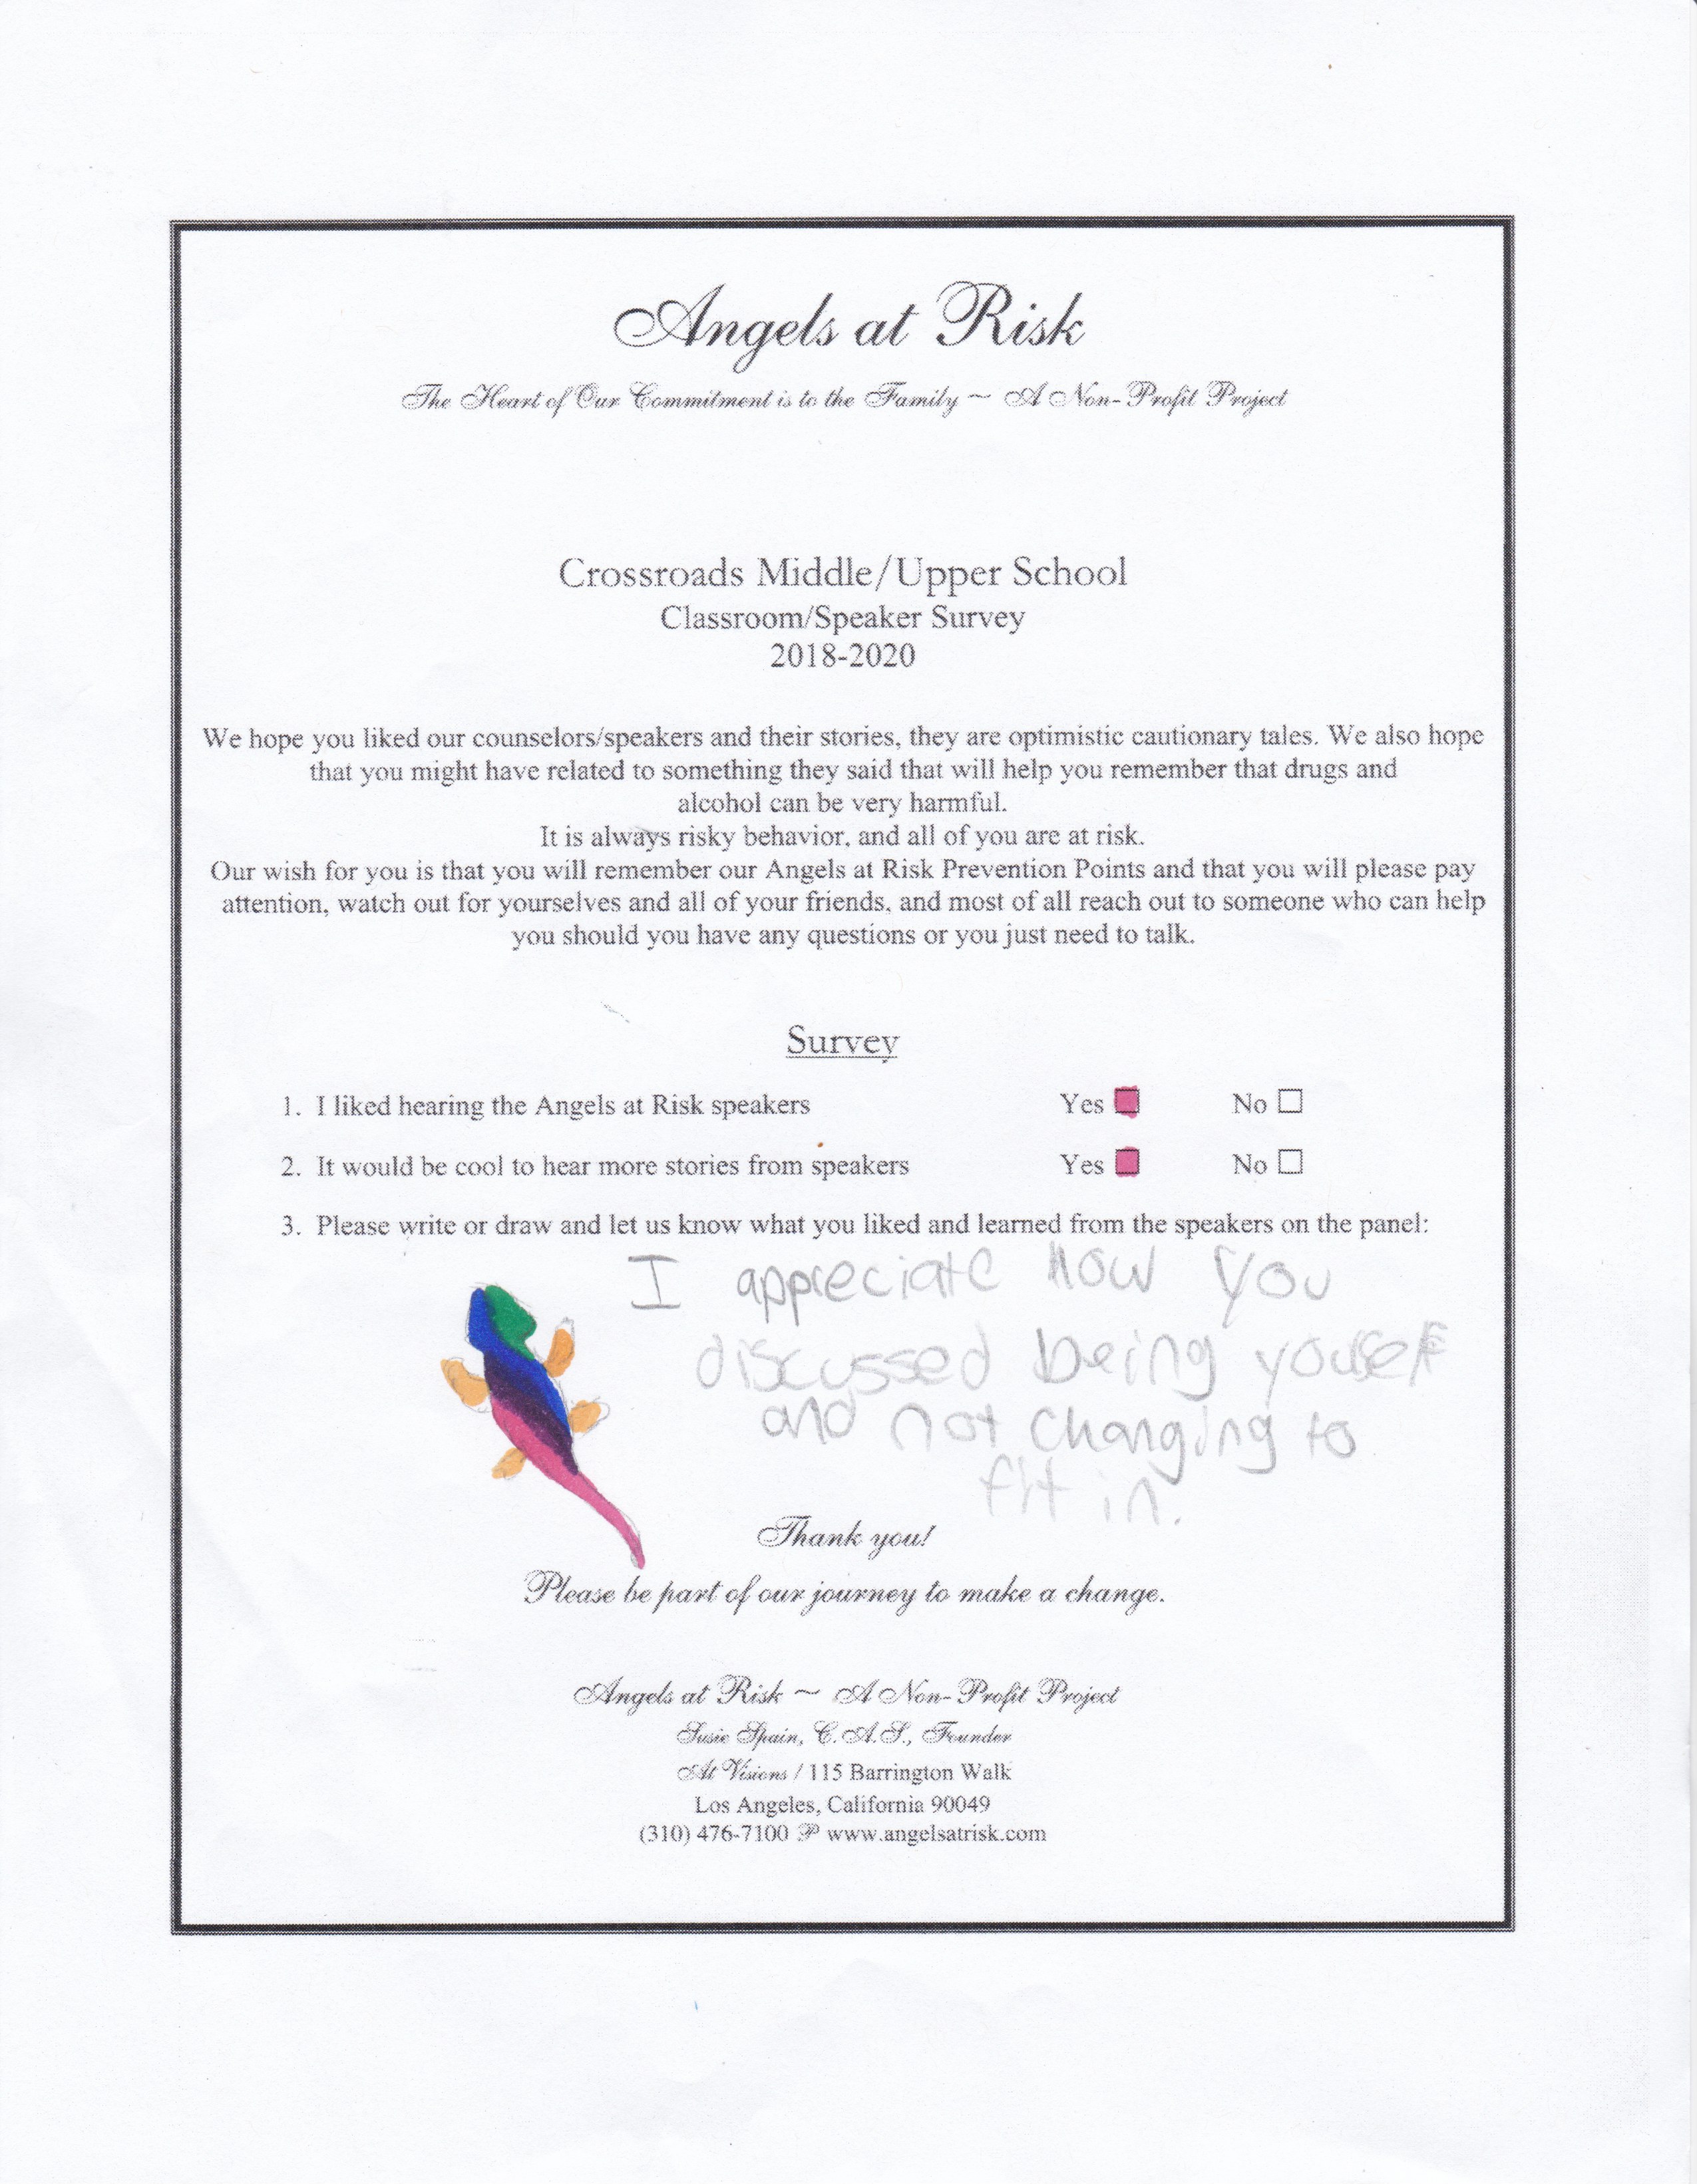 Angels at Risk
The Heart of Our Commitment is to the Family ~ A Non-Profit Project
Crossroads Middle/Upper School
Classroom/Speaker Survey
2018-2020
We hope you liked our counselors/speakers and their stories, they are optimistic cautionary tales. We also hope
that you might have related to something they said that will help you remember that drugs and
alcohol can be very harmful.
It is always risky behavior, and all of you are at risk.
Our wish for you is that you will remember our Angels at Risk Prevention Points and that you will please pay
attention, watch out for yourselves and all of your friends, and most of all reach out to someone who can help
you should you have any questions or you just need to talk.
Survey
1. I liked hearing the Angels at Risk speakers Yes No
2. It would be cool to hear more stories from speakers Yes No
3. Please write or draw and let us know what you liked and learned from the speakers on the panel:
I appreciate how you
discussed being yourself
and not changing to
fit in.
Thank you!
Please be part of our journey to make a change.
Angels at Risk ~ A Non-Profit Project
Susie Spain, C.A.S., Founder
At Visions / 115 Barrington Walk
Los Angeles, California 90049
(310) 476-7100 P www.angelsatrisk.com